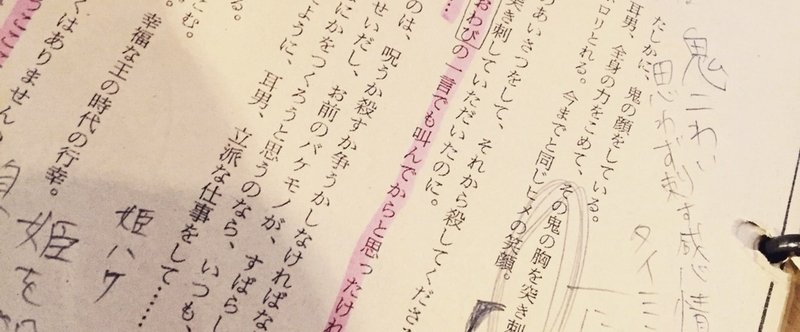 鬼こわい
思わず
タイミ
たしかに、鬼の顔をしている。
耳男、全身の力をこめて、その鬼の胸を突き刺
ロリとれる。今までと同じヒメの笑顔。
のあいさつをして、それから殺してくださ
突き刺していただいたのに。
おわびの一言でも叫んでからと思ったけれ
のは、呪うか殺すか争うかしなければな
せいだし、お前のバケモノが、すばらし
なにかをつくろうと思うのなら、いつも、
ように、耳男、立派な仕事をして……
る。
こむ。
幸福な王の時代の行幸。
くはありません
姫ハケ
姫を